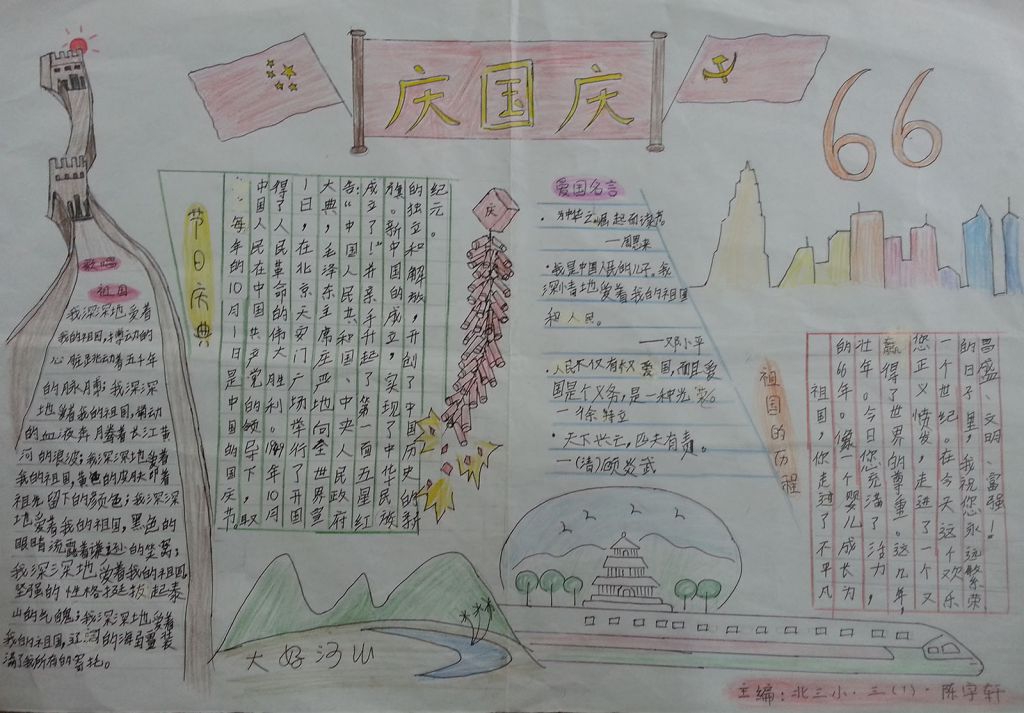 庆国庆
66
歌唱
祖国
我深深地爱着
我的祖国，搏动的
心脏跳动着五千年
的脉搏；我深深
地爱着我的祖国，涌动
的血液奔腾着长江黄
河的浪波；我深深地爱着
我的祖国，黄色的皮肤印着
祖先留下的颜色；我深深
地爱着我的祖国，黑色的
眼睛流露着谦逊的坐窝；
我深深地爱着我的祖国，
坚强的性格挺拔起泰
山的气魄；我深深地爱着
我的祖国，辽阔的海岛蕴装
满了我所有的寄托。
节日庆典
每年的10月1日是中国的国庆节。
中国人民在中国共产党的领导下，取
得了人民革命的伟大胜利。1949年10月
1日，在北京天安门广场举行了开国
大典，毛泽东主席庄严地向全世界宣
告：“中国人民共和国、中央人民政府
成立了！”并亲手升起了第一面五星红
旗。新中国的成立，实现了中华民族
的独立和解放，开创了中国历史的新
纪元。
庆
爱国名言
·为中华之崛起而读书
—周恩来
·我是中国人民的儿子。我
深情地爱着我的祖国
和人民。
—邓小平
·人民不仅有权爱国，而且爱
国是个义务，是一种光荣。
—徐特立
·天下兴亡，匹夫有责。
—(清)顾炎武
祖国的历程
祖国，你走过了不平凡
的66年。像一个婴儿成长为
壮年。今日您充满了活力，
赢得了世界的尊重。这几年，
您正义愤发，走进了一个又
一个世纪。在今天这个欢乐
的日子里，我祝您永远繁荣
昌盛、文明、富强！
大好河山
主编：北三小·三(1)·陈宇轩